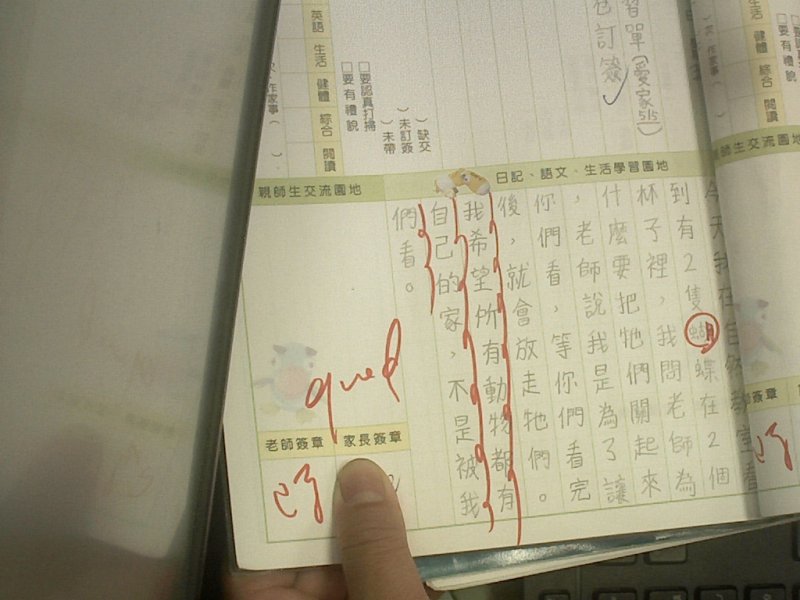 習單(愛家5/5)
訂簽
英語
生活
健體
綜合
閱讀
□要認真打掃
□要有禮貌
作家事(　)
)缺交
)未訂簽
)未帶
日記、語文、生活學習園地
今天我在自然教室看
到有2隻蝴蝶在2個
杯子裡,我問老師為
什麼要把牠們關起來
,老師說我是為了讓
你們看,等你們看完
後,就會放走牠們。
我希望所有動物都有
自己的家,不是被我
們看。
親師生交流園地
good
老師簽章
家長簽章
生活
健體
綜合
閱讀
□要有禮貌
作家事(
師生交流園地
簽章